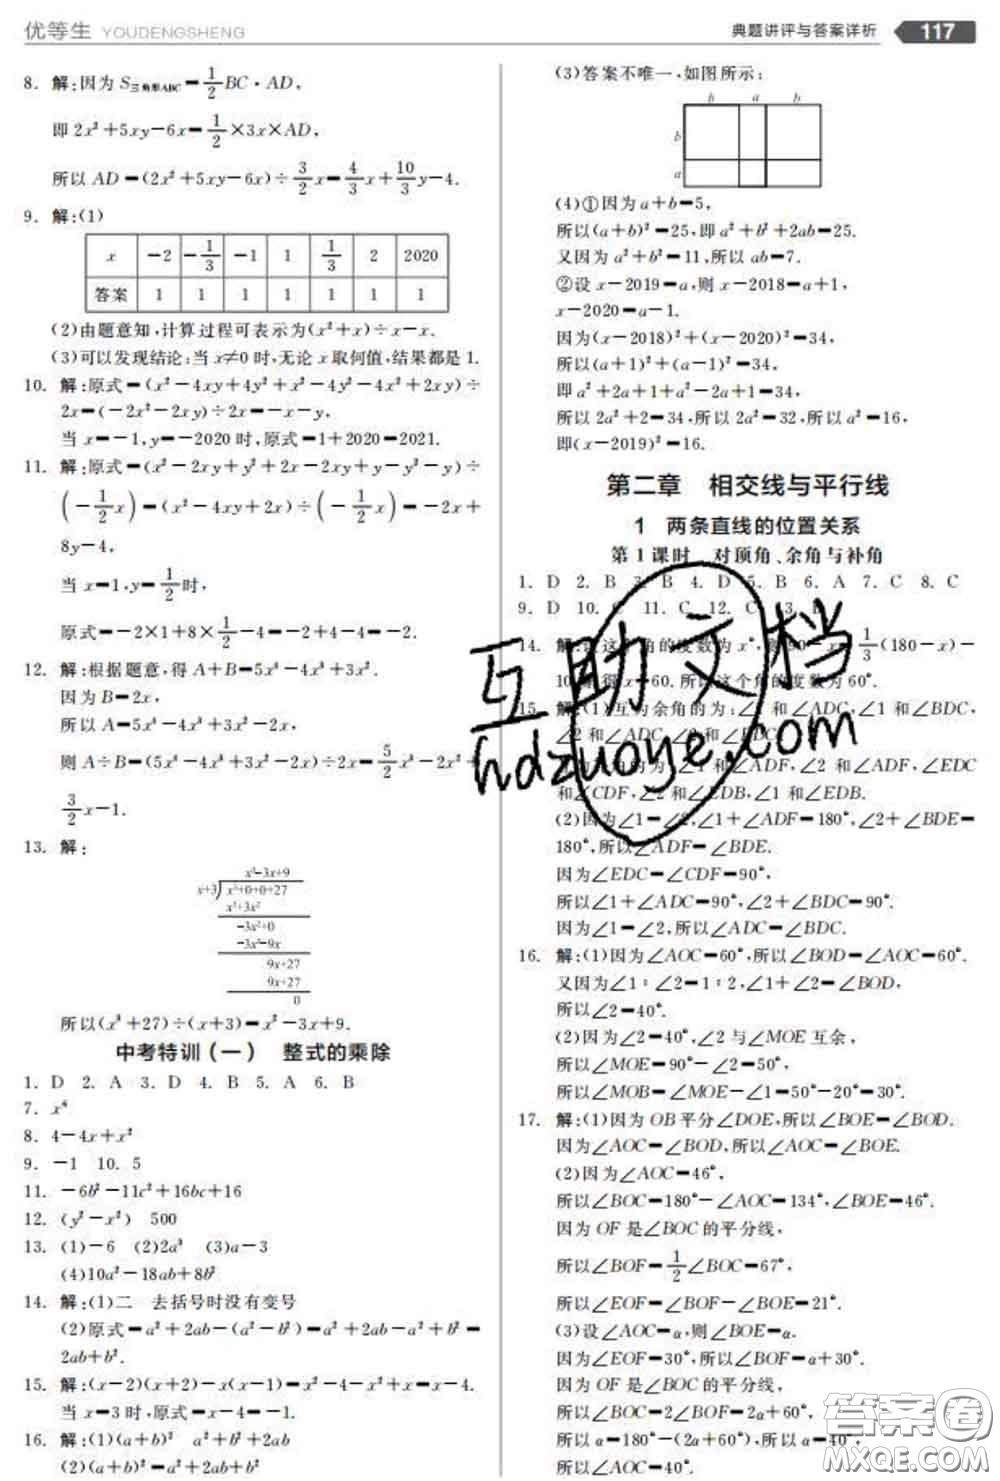 优等生 YOUDENGSHENG
典题讲评与答案详析 117
8. 解:因为 S三角形ABC=1/2 BC·AD,
即 2x²+5xy-6x=1/2×3x×AD,
所以 AD=(2x²+5xy-6x)÷3/2 x=4/3 x+10/3 y-4.
9. 解:(1)
x -2 -1/3 -1 1 1/3 2 2020
答案 1 1 1 1 1 1 1
(2)由题意知,计算过程可表示为(x²+x)÷x-x.
(3)可以发现结论:当 x≠0 时,无论 x 取何值,结果都是 1.
10. 解:原式=(x²-4xy+4y²+x²-4y²-4x²+2xy)÷
2x=(-2x²-2xy)÷2x=-x-y,
当 x=-1,y=-2020 时,原式=1+2020=2021.
11. 解:原式=(x²-2xy+y²+2x-2xy+y-y²-y)÷
(-1/2 x)=(x²-4xy+2x)÷(-1/2 x)=-2x+
8y-4,
当 x=1,y=1/2 时,
原式=-2×1+8×1/2-4=-2+4-4=-2.
12. 解:根据题意,得 A+B=5x⁴-4x³+3x².
因为 B=2x,
所以 A=5x⁴-4x³+3x²-2x,
则 A÷B=(5x⁴-4x³+3x²-2x)÷2x=5/2 x³-2x²+
3/2 x-1.
13. 解:
x²-3x+9
x+3 x³+0+0+27
x³+3x²
-3x²+0
-3x²-9x
9x+27
9x+27
0
所以(x³+27)÷(x+3)=x²-3x+9.
中考特训(一) 整式的乘除
1. D 2. A 3. D 4. B 5. A 6. B
7. x⁶
8. 4-4x+x²
9. -1 10. 5
11. -6b²-11c²+16bc+16
12. (y²-x²) 500
13. (1)-6 (2)2a³ (3)a-3
(4)10a²-18ab+8b²
14. 解:(1)二 去括号时没有变号
(2)原式=a²+2ab-(a²-b²)=a²+2ab-a²+b²=
2ab+b².
15. 解:(x-2)(x+2)-x(x-1)=x²-4-x²+x=x-4.
当 x=3 时,原式=x-4=-1.
16. 解:(1)(a+b)² a²+b²+2ab
(2)(a+b)²=a²+b²+2ab
(3)答案不唯一,如图所示:
b a b
b
a
(4)①因为 a+b=5,
所以(a+b)²=25,即 a²+b²+2ab=25.
又因为 a²+b²=11,所以 ab=7.
②设 x-2019=a,则 x-2018=a+1,
x-2020=a-1.
因为(x-2018)²+(x-2020)²=34,
所以(a+1)²+(a-1)²=34,
即 a²+2a+1+a²-2a+1=34,
所以 2a²+2=34,所以 2a²=32,所以 a²=16,
即(x-2019)²=16.
第二章 相交线与平行线
1 两条直线的位置关系
第 1 课时 对顶角、余角与补角
1. D 2. B 3. B 4. D 5. B 6. A 7. C 8. C
9. D 10. C 11. C 12. C 13. B
14. 解:设这个角的度数为 x°,则 90-x=1/3(180-x)-
10,解得 x=60.所以这个角的度数为 60°.
15. 解:(1)互为余角的为:∠1 和∠ADC,∠1 和∠BDC,
∠2 和∠ADC,∠2 和∠BDC.
∠1 和∠ADF,∠2 和∠ADF,∠EDC
和∠CDF,∠2 和∠EDB,∠1 和∠EDB.
(2)因为∠1=∠2,∠1+∠ADF=180°,∠2+∠BDE=
180°,所以∠ADF=∠BDE.
因为∠EDC=∠CDF=90°,
所以∠1+∠ADC=90°,∠2+∠BDC=90°.
因为∠1=∠2,所以∠ADC=∠BDC.
16. 解:(1)因为∠AOC=60°,所以∠BOD=∠AOC=60°.
又因为∠1∶∠2=1∶2,∠1+∠2=∠BOD,
所以∠2=40°.
(2)因为∠2=40°,∠2 与∠MOE 互余,
所以∠MOE=90°-∠2=50°,
所以∠MOB=∠MOE-∠1=50°-20°=30°.
17. 解:(1)因为 OB 平分∠DOE,所以∠BOE=∠BOD.
因为∠AOC=∠BOD,所以∠AOC=∠BOE.
(2)因为∠AOC=46°,
所以∠BOC=180°-∠AOC=134°,∠BOE=46°.
因为 OF 是∠BOC 的平分线,
所以∠BOF=1/2∠BOC=67°,
所以∠EOF=∠BOF-∠BOE=21°.
(3)设∠AOC=α,则∠BOE=α.
因为∠EOF=30°,所以∠BOF=α+30°.
因为 OF 是∠BOC 的平分线,
所以∠BOC=2∠BOF=2α+60°,
所以 α=180°-(2α+60°),所以 α=40°,
即∠AOC=40°.
互助文档
hdzuoye.com
答案圈
MXQE.COM